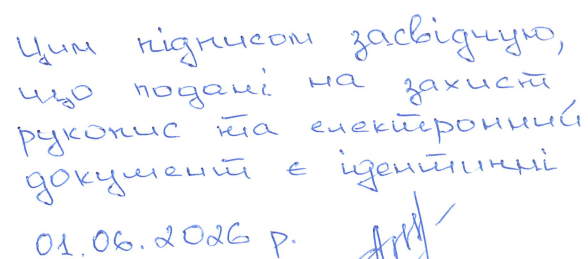 Цим підписом засвідчую,
що подані на захист
рукопис та електронний
документ є ідентичні
01.06.2026 р.